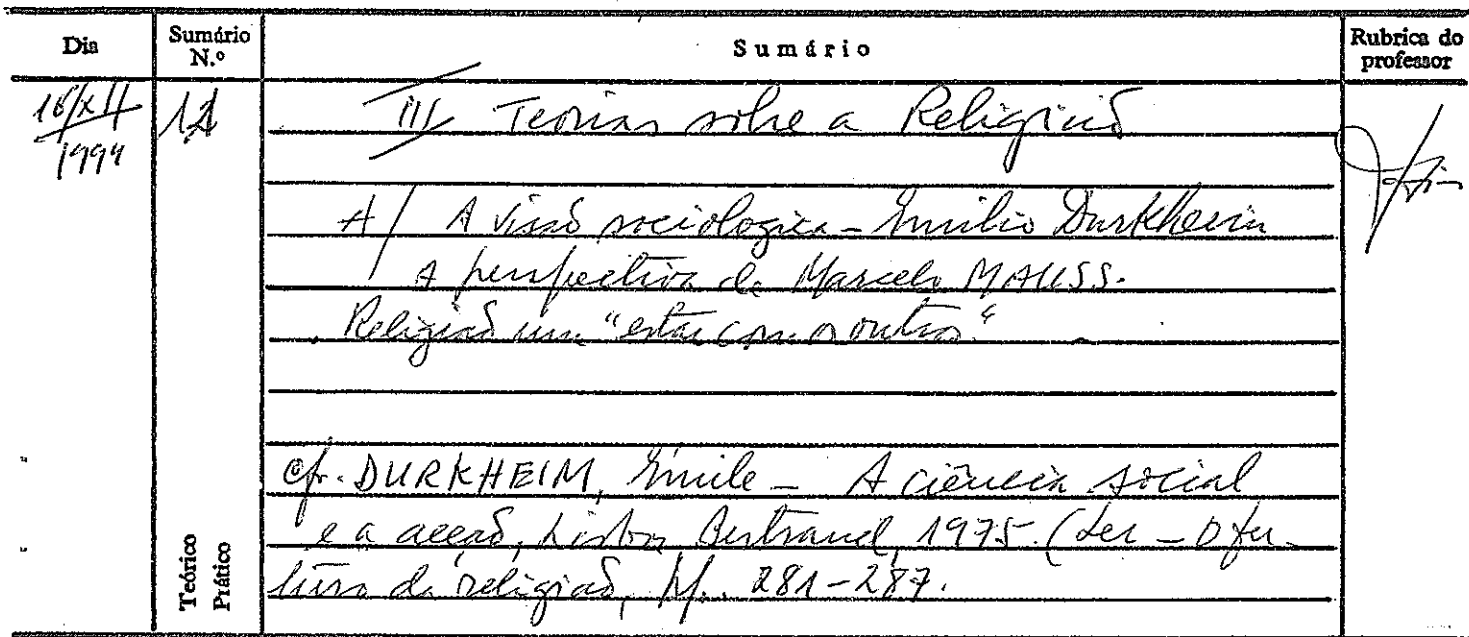 Dia Sumário N.º Sumário Rubrica do professor
16/XII/1994
III/ Teorias sobre a Religião
A/ A visão sociologica - Emílio Durkheim
A perspectiva de Marcelo MAUSS.
. Religião um "estar com os outros"
cf. DURKHEIM, Émile - A ciência social
e a acção, Lisboa, Bertrand, 1975. (Ler - O fu-
turo da religião, pp. 281-287.
Teórico
Prático